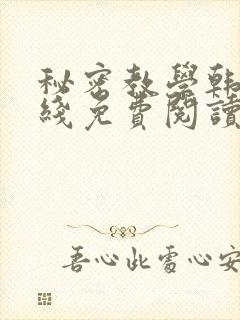 秘密教學韩
綫免費閱讀
吾心此處心安